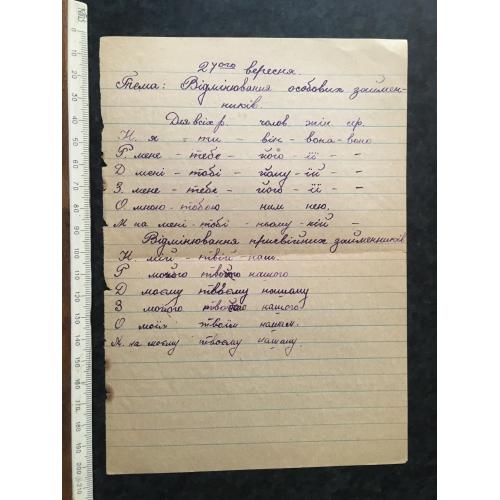 27ого вересня.
Тема: Відмінювання особових займен-
ників.
Для всіх р. чолов жін. ср.
Н. я - ти він - вона - воно
Р. мене - тебе - його - її - -
Д мені - тобі - йому - їй - -
З. мене - тебе - його - її - -
О мною - тобою ним нею.
М на мені - тобі - ньому - ній - -
Відмінювання присвійних займенників
Н. мій - твій - наш.
Р мойого твойого нашого
Д моєму твоєму нашому
З мойого твойого нашого
О моїм твоїм нашим.
М. на моєму твоєму нашому.